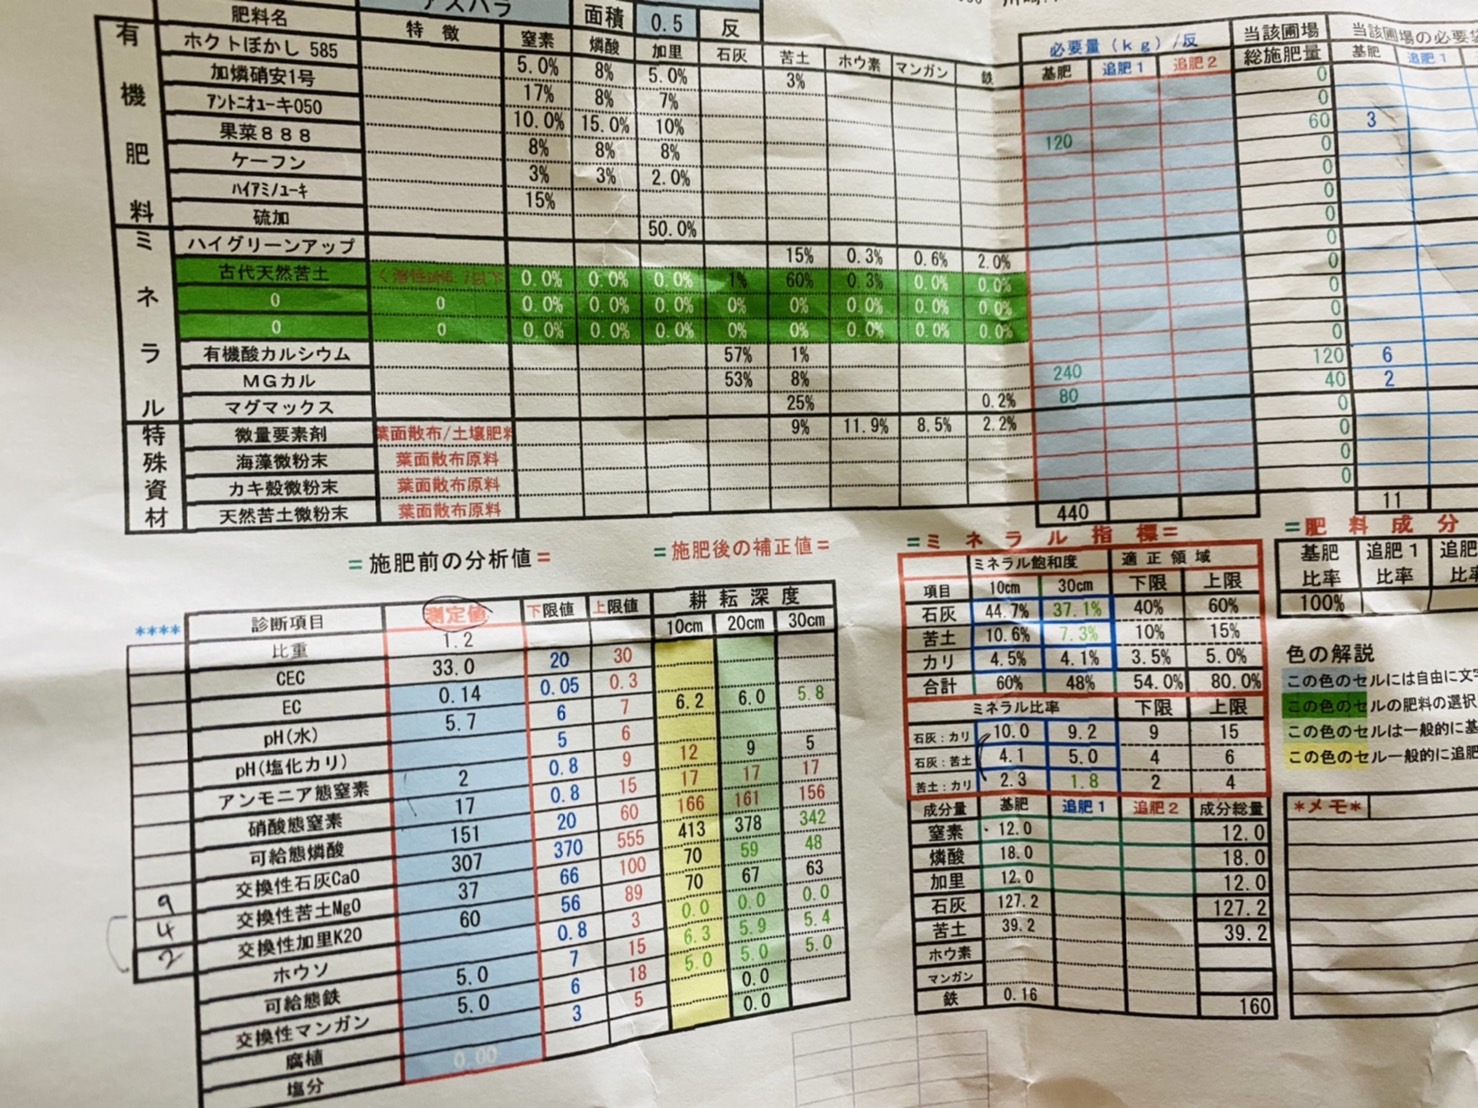 アスパラ 面積 0.5 反
肥料名 特徴 窒素 燐酸 加里 石灰 苦土 ホウ素 マンガン 鉄 必要量(kg)/反 当該圃場 当該圃場の必要
基肥 追肥1 追肥2 総施肥量 基肥 追肥1
有機肥料
ホクトぼかし 585 5.0% 8% 5.0% 3% 0
加燐硝安1号 17% 8% 7% 0
アントニオユーキ050 10.0% 15.0% 10% 120 60 3
果菜888 8% 8% 8% 0
ケーフン 3% 3% 2.0% 0
ハイアミノユーキ 15% 0
硫加 50.0% 0
ミネラル
ハイグリーンアップ 15% 0.3% 0.6% 2.0% 0
古代天然苦土 0.0% 0.0% 0.0% 1% 60% 0.3% 0.0% 0.0% 0
0 0 0.0% 0.0% 0.0% 0% 0% 0% 0.0% 0.0% 0
0 0 0.0% 0.0% 0.0% 0% 0% 0% 0.0% 0.0% 0
有機酸カルシウム 57% 1% 240 120 6
MGカル 53% 8% 80 40 2
マグマックス 25% 0.2% 0
特殊資材
微量要素剤 葉面散布/土壌肥料 9% 11.9% 8.5% 2.2% 0
海藻微粉末 葉面散布原料 0
カキ殻微粉末 葉面散布原料 0
天然苦土微粉末 葉面散布原料
440 11
=施肥前の分析値= =施肥後の補正値=
**** 診断項目 測定値 下限値 上限値 耕耘深度
10cm 20cm 30cm
比重 1.2
CEC 33.0 20 30
EC 0.14 0.05 0.3
pH(水) 5.7 6 7 6.2 6.0 5.8
pH(塩化カリ) 5 6
アンモニア態窒素 2 0.8 9 12 9 5
硝酸態窒素 17 0.8 15 17 17 17
可給態燐酸 151 20 60 166 161 156
交換性石灰CaO 307 370 555 413 378 342
9 交換性苦土MgO 37 66 100 70 59 48
4 交換性加里K2O 60 56 89 70 67 63
2 ホウソ 0.8 3 0.0 0.0 0.0
可給態鉄 5.0 7 15 6.3 5.9 5.4
交換性マンガン 5.0 6 18 5.0 5.0 5.0
腐植 3 5 0.0
塩分 0.00 0.0
=ミネラル指標=
ミネラル飽和度 適正領域
項目 10cm 30cm 下限 上限
石灰 44.7% 37.1% 40% 60%
苦土 10.6% 7.3% 10% 15%
カリ 4.5% 4.1% 3.5% 5.0%
合計 60% 48% 54.0% 80.0%
ミネラル比率 下限 上限
石灰:カリ 10.0 9.2 9 15
石灰:苦土 4.1 5.0 4 6
苦土:カリ 2.3 1.8 2 4
成分量 基肥 追肥1 追肥2 成分総量
窒素 12.0 12.0
燐酸 18.0 18.0
加里 12.0 12.0
石灰 127.2 127.2
苦土 39.2 39.2
ホウ素
マンガン
鉄 0.16 160
=肥料成分
基肥 追肥1 追肥
比率 比率
100%
色の解説
この色のセルには自由に文字
この色のセルの肥料の選択
この色のセルは一般的に基
この色のセル一般的に追肥
*メモ*